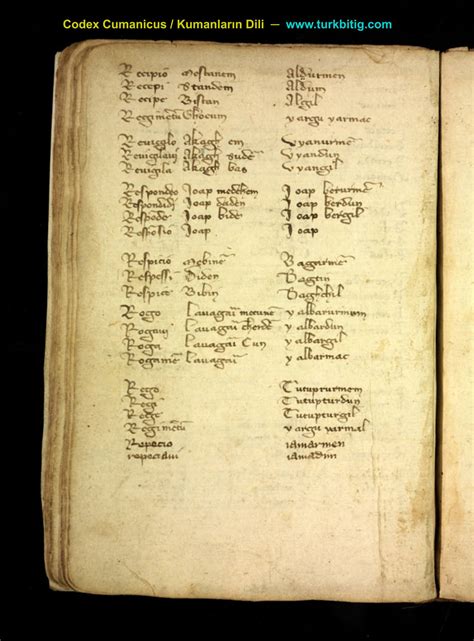 Codex Cumanicus / Kumanların Dili — www.turkbitig.com
Recipio Mestanem Aldurmen
Recepi Standem Aldum
Recipe Bistan Algil
Regimētū Ghocum yargu yarmac
Reuigilo Akagh em Uyanurmē
Reuigilaui Akagh sudē Uyandum
Reuigila Akagh bas Uyangil
Respondeo Joap medehem Joap berurmē
Respondidi Joap daden Joap berdum
Respōde Joap bide Joap bergil
Resposio Joap Joap
Respicio Mebinē Bagarmē
Respessi Diden Bagtin
Respice Bibin Baghchil
Rogo Lauagaū mecunē yalbarurmen
Rogaui Lauagaū cherdē yalbardum
Roga Lauagaū Cun yalbargil
Rogamē Lauagaū yalbarmac
Rego Tutupturmem
Regi Tutupturdum
Rege Tutupturgil
Regimētū yargu yarmal
repecio iamarmen
repeciaui iamadim